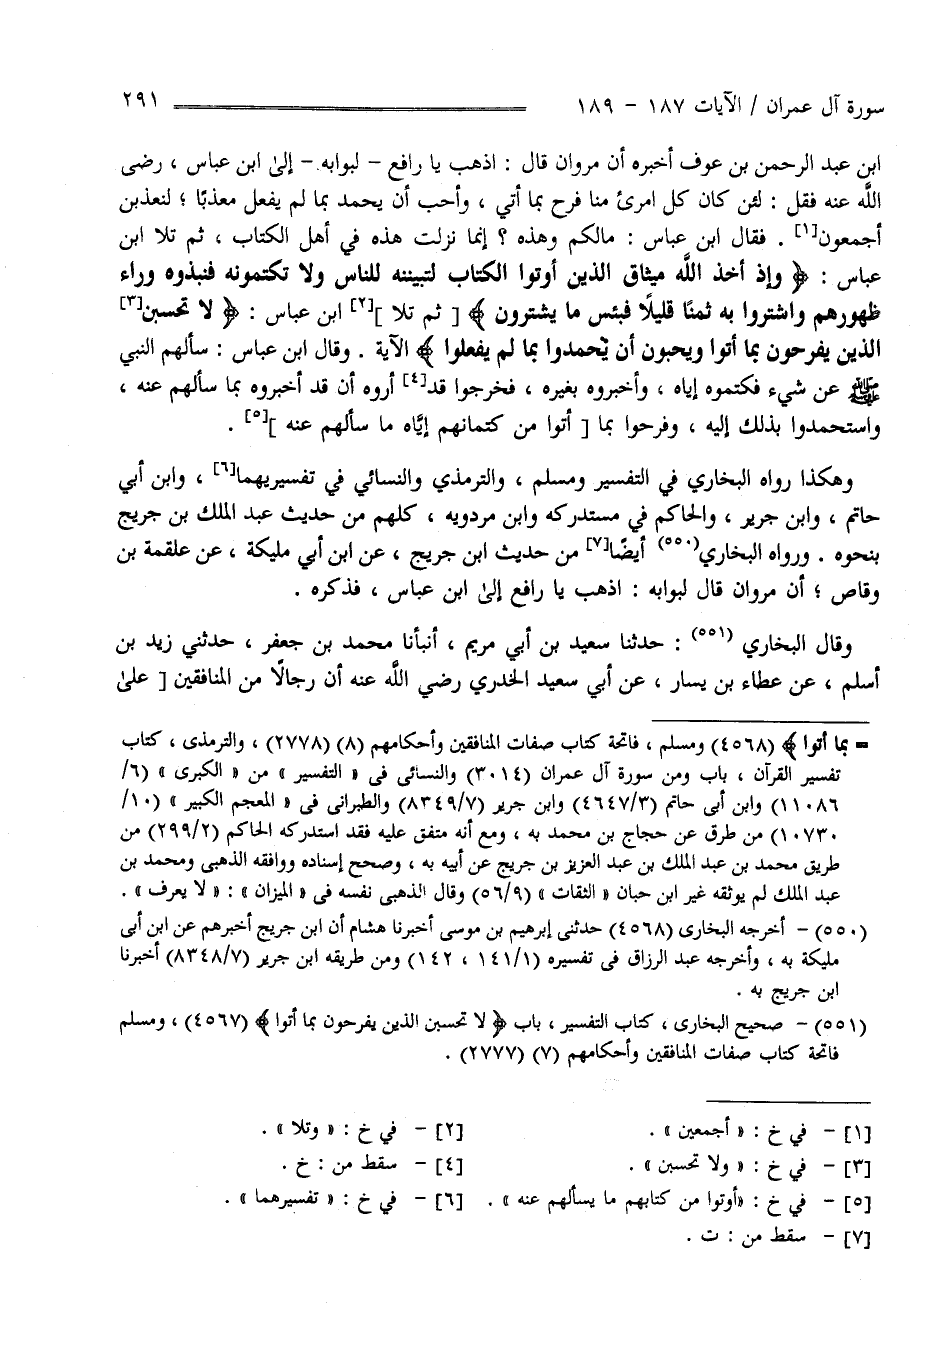 سورة آل عمران / الآيات ١٨٧ - ١٨٩ ٢٩١
ابن عبد الرحمن بن عوف أخبره أن مروان قال : اذهب يا رافع - لبوابه - إلىٰ ابن عباس ، رضى
اللَّه عنه فقل : لئن كان كل امرئ منا فرح بما أتي ، وأحب أن يحمد بما لم يفعل معذبًا ؛ لنعذبن
أجمعون[١] . فقال ابن عباس : مالكم وهذه ؟ إنما نزلت هذه في أهل الكتاب ، ثم تلا ابن
عباس : ﴿ وإذ أخذ اللَّه ميثاق الذين أوتوا الكتاب لتبيننه للناس ولا تكتمونه فنبذوه وراء
ظهورهم واشتروا به ثمنًا قليلًا فبئس ما يشترون ﴾ [ ثم تلا ][٢] ابن عباس : ﴿ لا تحسبن[٣]
الذين يفرحون بما أتوا ويحبون أن يُحمدوا بما لم يفعلوا ﴾ الآية . وقال ابن عباس : سألهم النبي
ﷺ عن شيء فكتموه إياه ، وأخبروه بغيره ، فخرجوا قد[٤] أروه أن قد أخبروه بما سألهم عنه ،
واستحمدوا بذلك إليه ، وفرحوا بما [ أتوا من كتمانهم إيَّاه ما سألهم عنه ][٥] .
وهكذا رواه البخاري في التفسير ومسلم ، والترمذي والنسائي في تفسيريهما[٦] ، وابن أبي
حاتم ، وابن جرير ، والحاكم في مستدركه وابن مردويه ، كلهم من حديث عبد الملك بن جريج
بنحوه . ورواه البخاري(٥٥٠) أيضًا[٧] من حديث ابن جريج ، عن ابن أبي مليكة ، عن علقمة بن
وقاص ؛ أن مروان قال لبوابه : اذهب يا رافع إلىٰ ابن عباس ، فذكره .
وقال البخاري (٥٥١) : حدثنا سعيد بن أبي مريم ، أنبأنا محمد بن جعفر ، حدثني زيد بن
أسلم ، عن عطاء بن يسار ، عن أبي سعيد الخدري رضي اللَّه عنه أن رجالًا من المنافقين [ علىٰ
= بما أتوا ﴾ (٤٥٦٨) ومسلم ، فاتحة كتاب صفات المنافقين وأحكامهم (٨) (٢٧٧٨) ، والترمذى ، كتاب
تفسير القرآن ، باب ومن سورة آل عمران (٣٠١٤) والنسائى فى « التفسير » من « الكبرى » (٦/
١١٠٨٦) وابن أبى حاتم (٤٦٤٧/٣) وابن جرير (٨٣٤٩/٧) والطبرانى فى « المعجم الكبير » (١٠/
١٠٧٣٠) من طرق عن حجاج بن محمد به ، ومع أنه متفق عليه فقد استدركه الحاكم (٢٩٩/٢) من
طريق محمد بن عبد الملك بن عبد العزيز بن جريج عن أبيه به ، وصحح إسناده ووافقه الذهبى ومحمد بن
عبد الملك لم يوثقه غير ابن حبان « الثقات » (٥٦/٩) وقال الذهبى نفسه فى « الميزان » : « لا يعرف » .
(٥٥٠) - أخرجه البخارى (٤٥٦٨) حدثنى إبرهيم بن موسى أخبرنا هشام أن ابن جريج أخبرهم عن ابن أبى
مليكة به ، وأخرجه عبد الرزاق فى تفسيره (١٤١/١ ، ١٤٢) ومن طريقه ابن جرير (٨٣٤٨/٧) أخبرنا
ابن جريج به .
(٥٥١) - صحيح البخارى ، كتاب التفسير ، باب ﴿ لا تحسبن الذين يفرحون بما أتوا ﴾ (٤٥٦٧) ، ومسلم
فاتحة كتاب صفات المنافقين وأحكامهم (٧) (٢٧٧٧) .
[١] - في خ : « أجمعين » . [٢] - في خ : « وتلا » .
[٣] - في خ : « ولا تحسبن » . [٤] - سقط من : خ .
[٥] - في خ : «أوتوا من كتابهم ما يسألهم عنه » . [٦] - في خ : « تفسيرهما » .
[٧] - سقط من : ت .